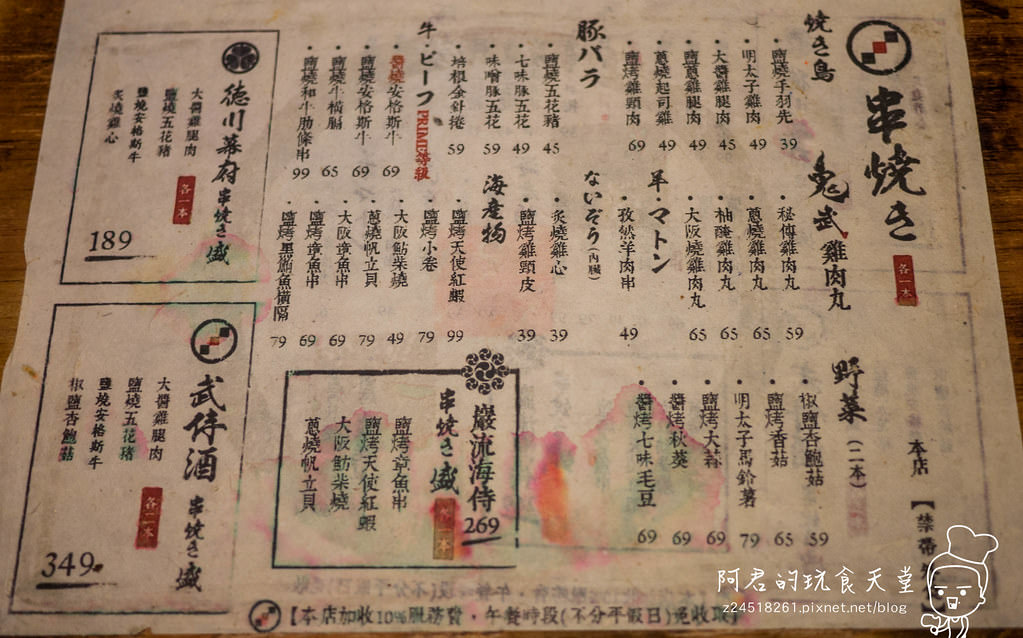 串焼き
各一本
焼き鳥
鹽燒手羽先 39
明太子雞肉 49
大醬雞腿肉 45
鹽蔥雞腿肉 49
蔥燒起司雞 49
鹽烤雞頸肉 69
豚バラ
鹽燒五花豬 45
七味豚五花 49
味噌豚五花 59
培根金針捲 59
牛・ビーフ PRIME等級
醬燒安格斯牛 69
鹽燒安格斯牛 69
鹽燒牛橫膈 65
鹽燒和牛肋條串 99
鬼武 雞肉丸
秘傳雞肉丸 59
蔥燒雞肉丸 65
柚醃雞肉丸 65
大阪燒雞肉丸 65
羊・マトン
孜然羊肉串 49
ないぞう(內臟)
炙燒雞心 39
鹽烤雞頸皮 39
海産物
鹽烤天使紅蝦 99
鹽烤小卷 79
大阪鮎柴燒 49
蔥燒帆立貝 79
大阪章魚串 69
鹽烤章魚串 69
鹽烤黑鮪魚橫隔 79
野菜(二本)
椒鹽杏鮑菇 59
鹽烤香菇 65
明太子馬鈴薯 79
鹽烤大蒜 69
醬烤秋葵 69
醬烤七味毛豆 69
本店【禁帶
德川幕府 串焼き盛
各一本
大醬雞腿肉
鹽燒五花豬
鹽燒安格斯牛
炙燒雞心
189
武侍酒 串焼き盛
各二本
大醬雞腿肉
鹽燒五花豬
鹽燒安格斯牛
椒鹽杏鮑菇
349
巖流海侍
串焼き盛
269
鹽烤章魚串
鹽烤天使紅蝦
大阪魴柴燒
蔥燒帆立貝
【本店加收10%服務費，午餐時段(不分平假日)免收取】
阿君的玩食天堂
z24518261.pixnet.net/blog